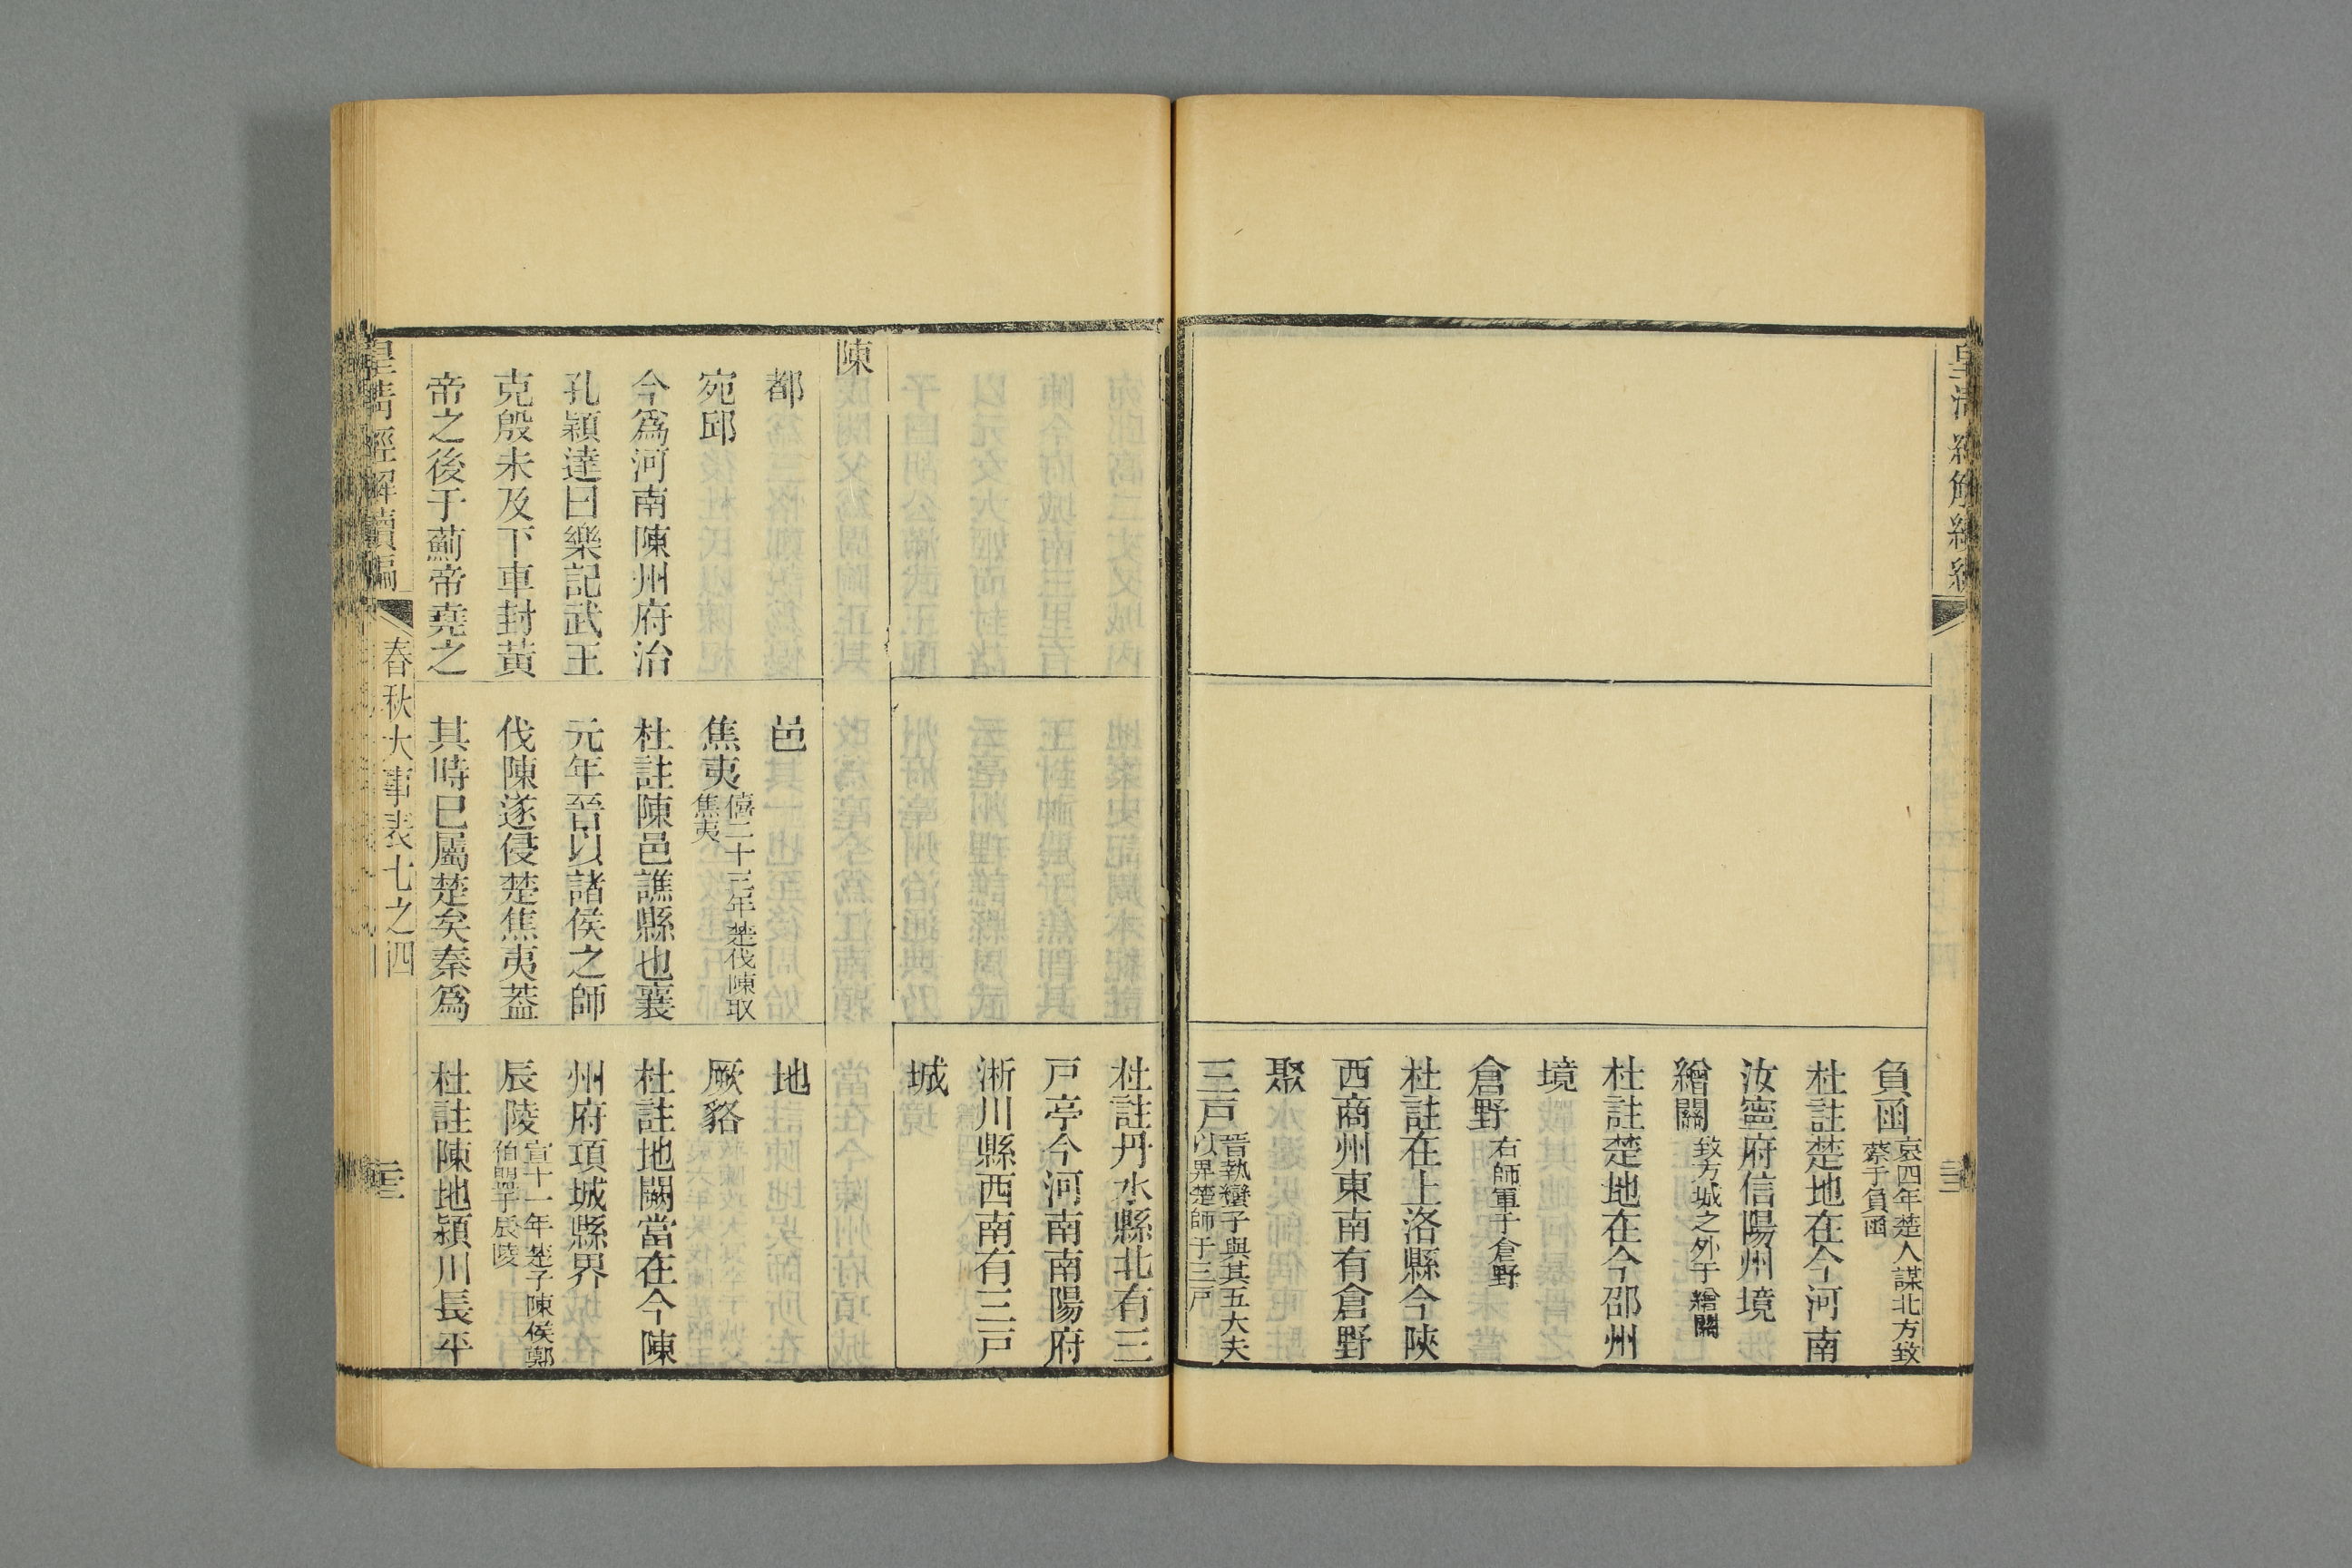 皇清經解續編
負函哀四年楚人謀北方致蔡于負函
杜註楚地在今河南
汝寧府信陽州境
繒關致方城之外于繒關
杜註楚地在今邵州
境
倉野右師軍于倉野
杜註在上洛縣今陝
西商州東南有倉野
聚
三戸晉執蠻子與其五大夫以畀楚師于三戸
杜註丹水縣北有三
戸亭今河南南陽府
淅川縣西南有三戸
城
陳
都
宛邱
今爲河南陳州府治
孔穎達曰樂記武王
克殷未及下車封黃
帝之後于薊帝堯之
邑
焦夷僖二十三年楚伐陳取焦夷
杜註陳邑譙縣也襄
元年晉以諸侯之師
伐陳遂侵楚焦夷蓋
其時已屬楚矣秦爲
地
厥貉
杜註地闕當在今陳
州府項城縣界
辰陵宣十一年楚子陳侯鄭伯盟于辰陵
杜註陳地潁川長平
皇清經解續編
春秋大事表七之四